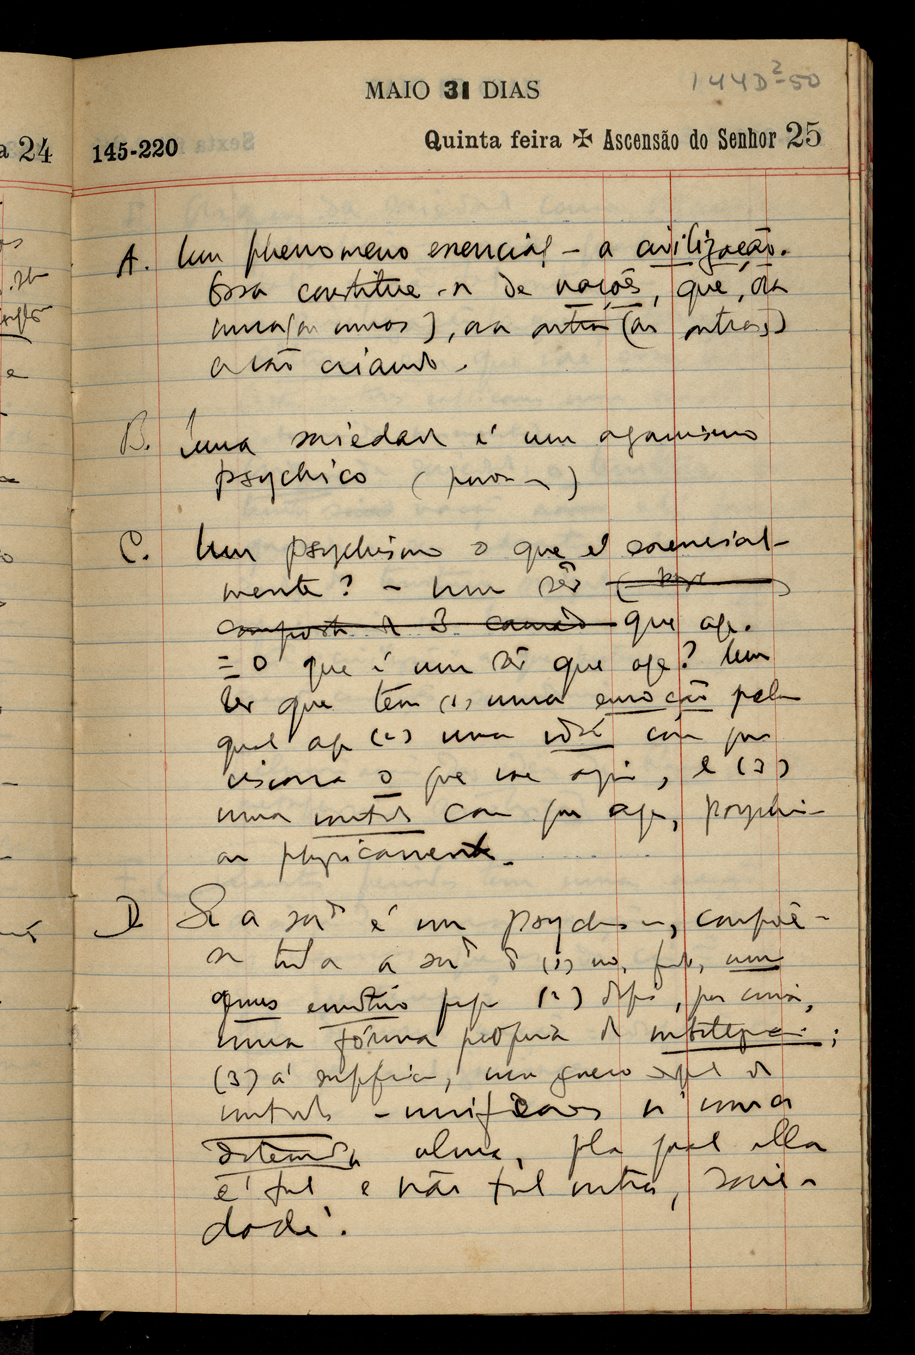 144D²-50
MAIO 31 DIAS
a 24
145-220 Quinta feira ✠ Ascensão do Senhor 25
A. Um phenomeno essencial – a civilização.
Essa constitue-se de nações, que, ora
uma (ou umas), ora outra (ou outras)
a vão criando.
B. Uma sociedade é um organismo
psychico
C. Um psychismo o que é essencial-
mente? – Um sêr
composto de 3 camadas que age.
= O que é um sêr que age? Um
ser que tem (1) uma emoção pela
qual age (2) uma idéa com que
visiona o que age, e (3)
uma vontade com que age, psychi-
ou physicamente.
D. Se a soc.de é um psychismo, compõe-
se toda a soc.de de (1) no fundo, um
genus emotivo (2) depois, por cima,
uma fórma propria de intelligencia;
(3) á superficie, um genero de
vontade – unificados n'uma
determinada alma, pela qual ella
é tal e não tal outra, socie-
dade.